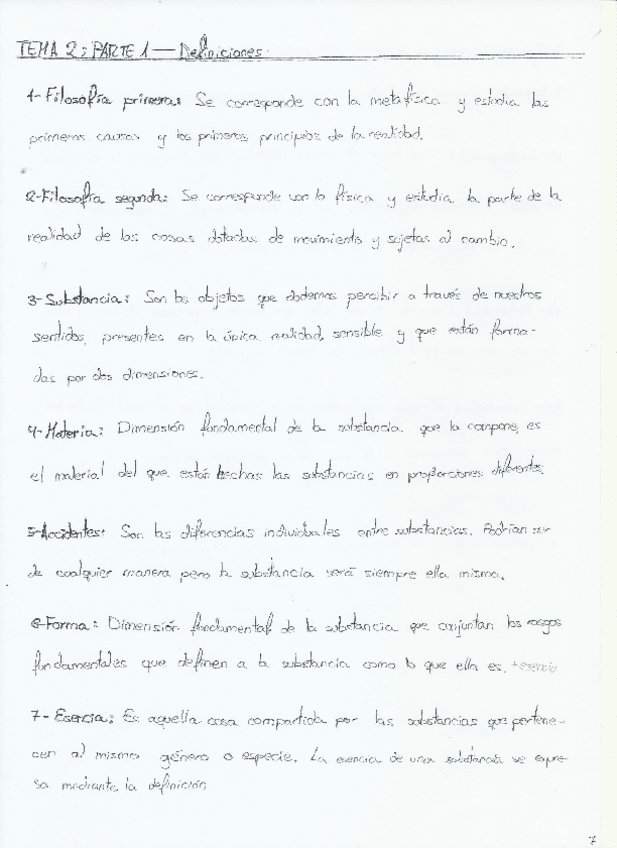 TEMA 2: PARTE 1 — Definiciones:
1-Filosofía primera: Se corresponde con la metafísica y estudia las
primeras causas y los primeros principios de la realidad.
2-Filosofía segunda: Se corresponde con la física y estudia la parte de la
realidad de las cosas dotadas de movimiento y sujetas al cambio.
3-Substancia: Son los objetos que podemos percibir a través de nuestros
sentidos, presentes en la única realidad, sensible y que están forma-
das por dos dimensiones.
4-Materia: Dimensión fundamental de la substancia que la compone, es
el material del que están hechas las substancias en proporciones diferentes.
5-Accidentes: Son las diferencias individuales entre substancias. Podrían ser
de cualquier manera pero la substancia será siempre ella misma.
6-Forma: Dimensión fundamental de la substancia que conjuntan los rasgos
fundamentales que definen a la substancia como lo que ella es. +esencia
7-Esencia: Es aquella cosa compartida por las substancias que pertene-
cen al mismo género o especie. La esencia de una substancia se expre-
sa mediante la definición
7